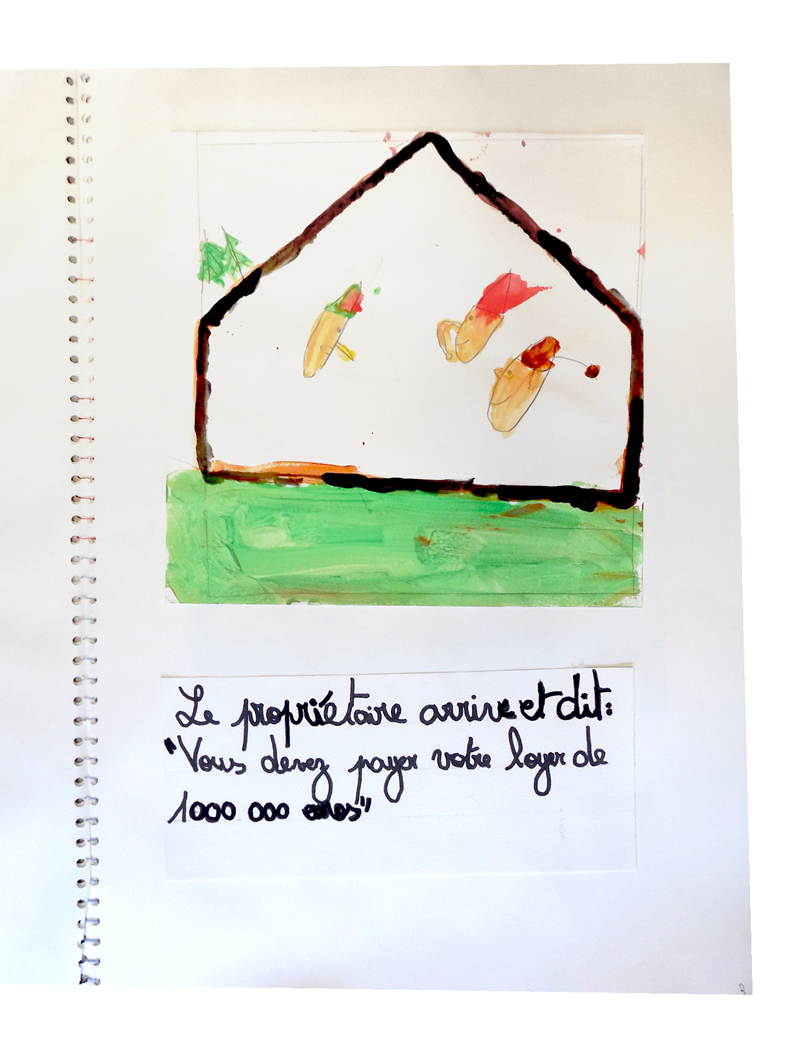 Le propriétaire arrive et dit:
"Vous devez payer votre loyer de
1000 000 euros"